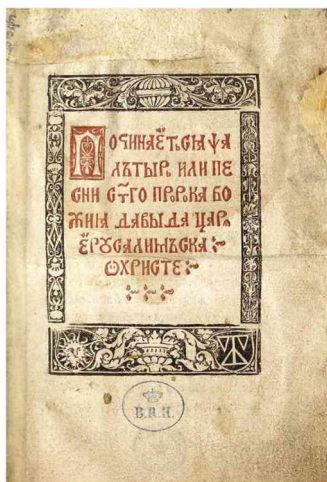 Починаеть сѧ ѱа
лътырь или пе
сни ст҃го прⷪ҇рка бо
жиꙗ давыда царѧ
ерѹсалимъска
ѡ христе
В.В.Н.